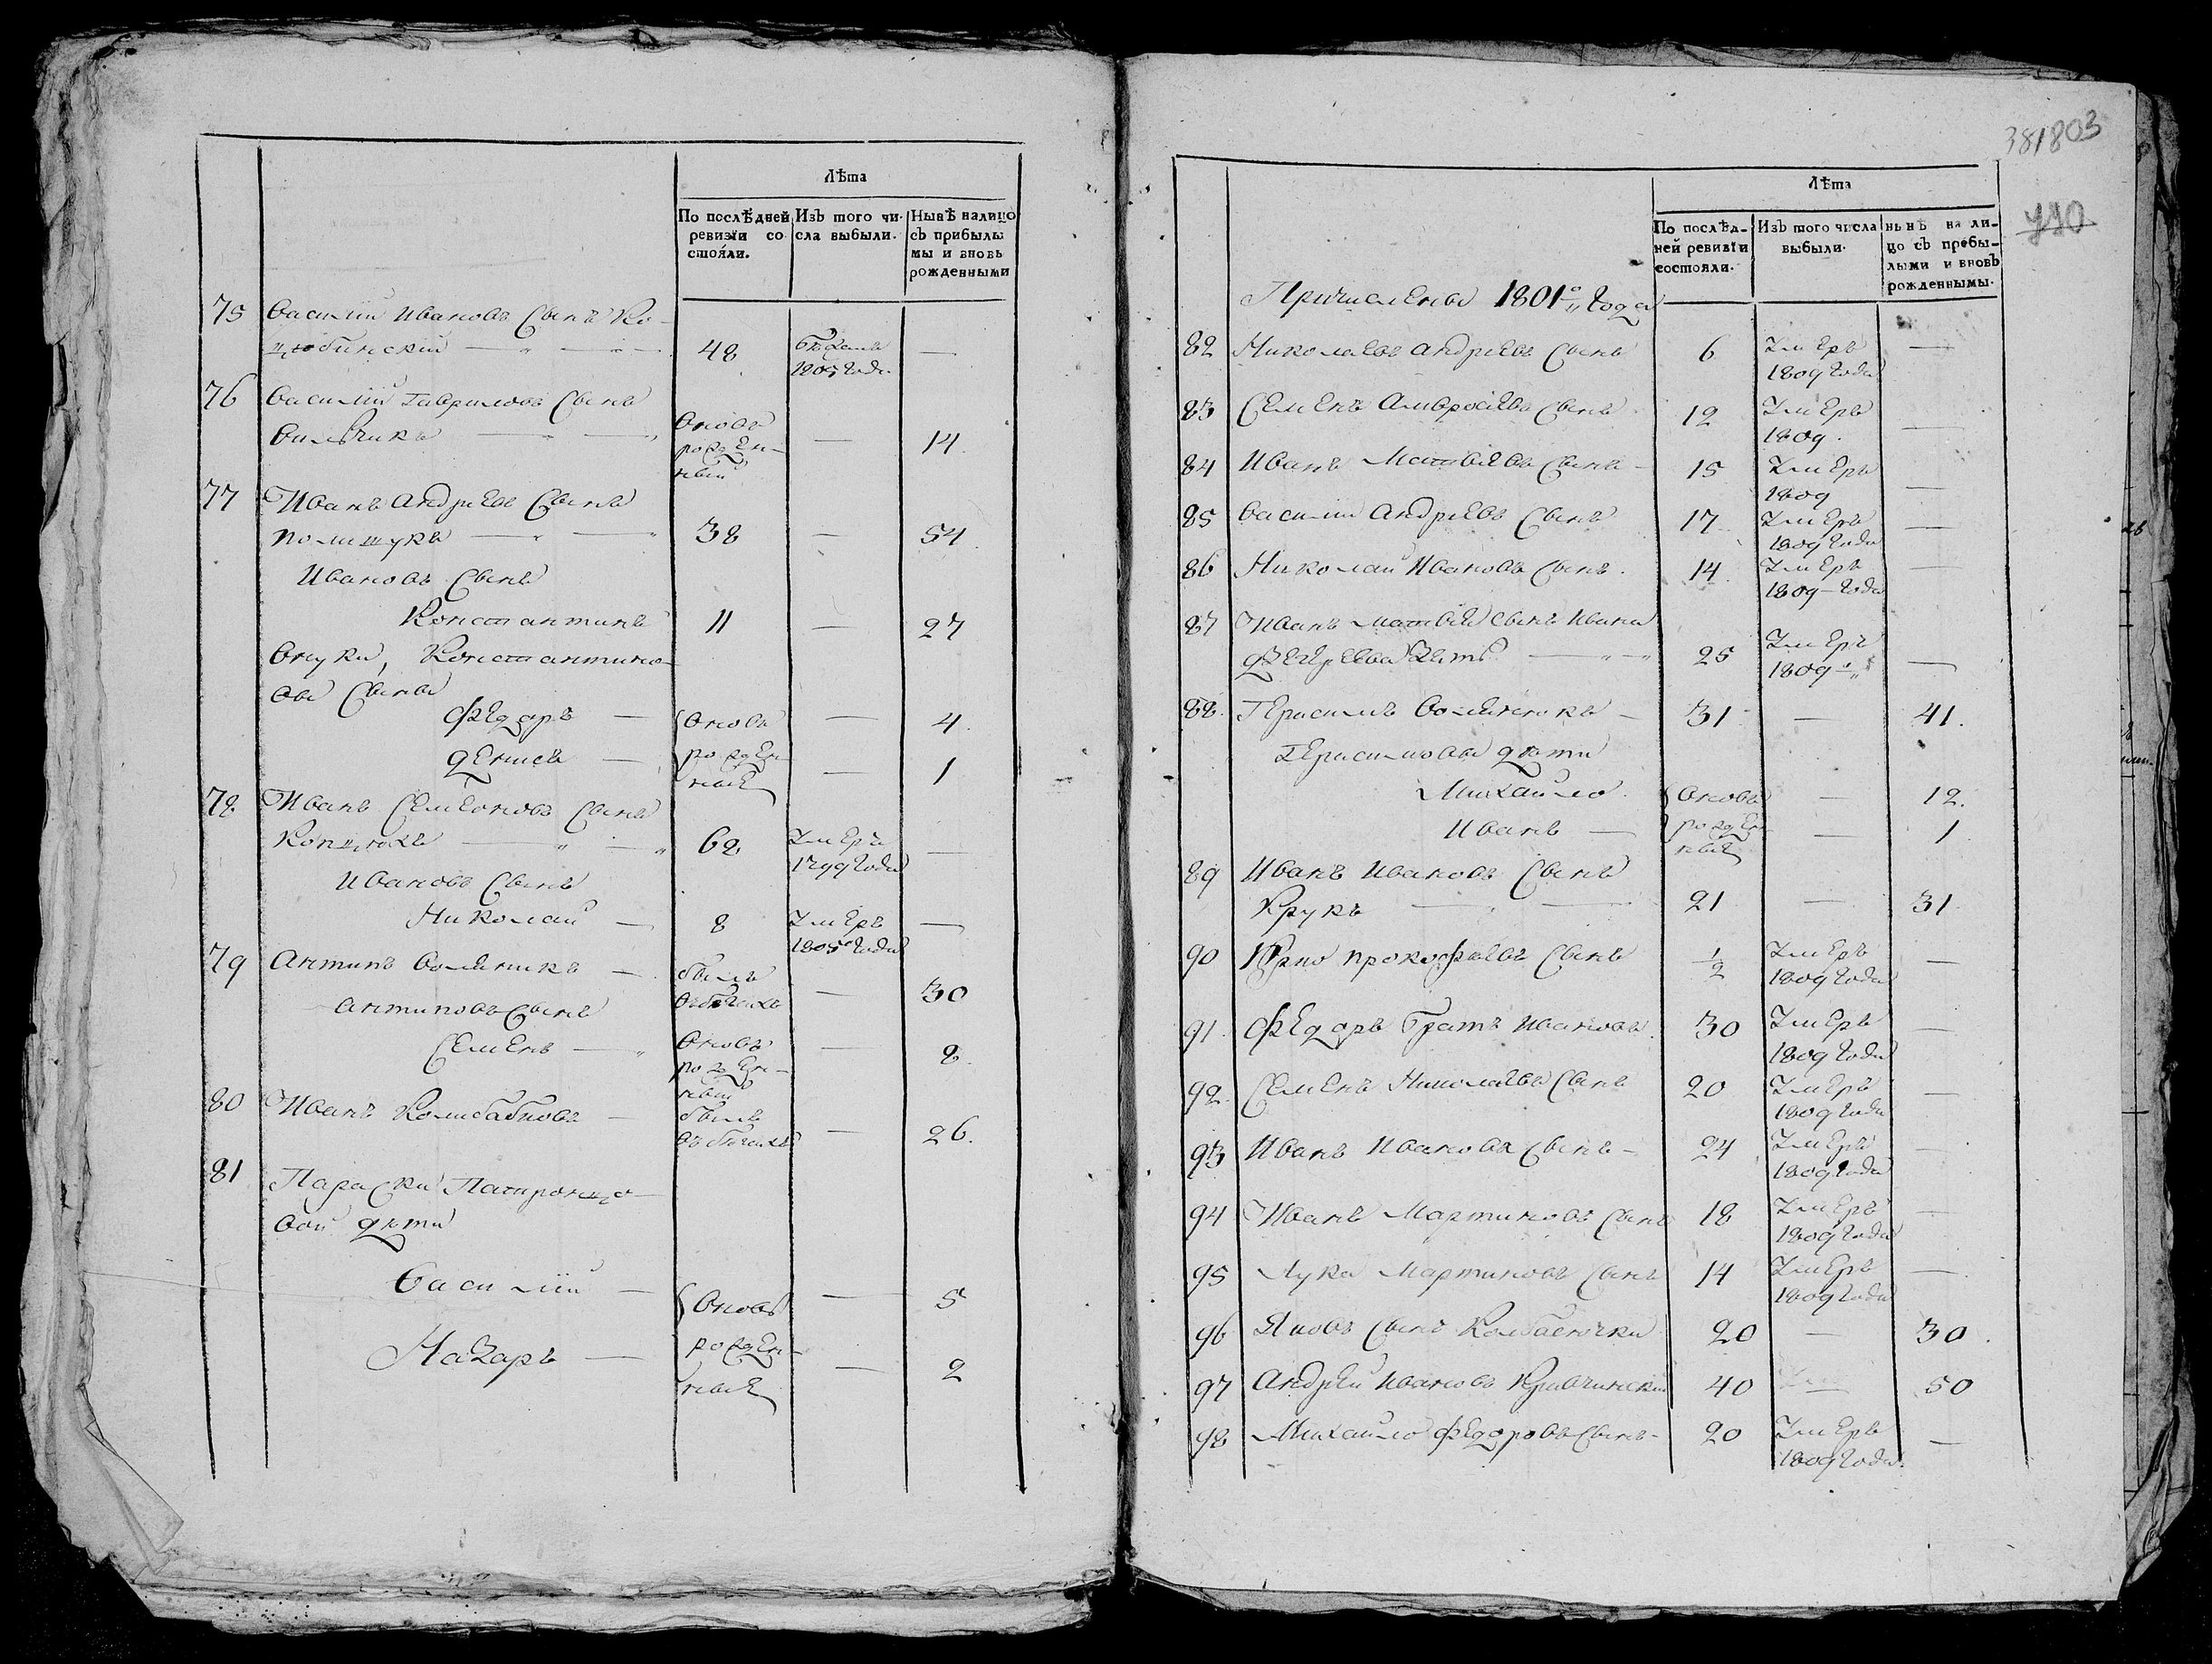 Лѣта
По послѣдней ревизіи со стояли.
Изъ того чи- сла выбыли.
Нынѣ налицо съ прибылы мы и вновь рожденными
75 Василій Ивановъ Сынъ Ко-
цюбинскій — 48 бѣжалъ —
1805 Года
76 Василій Гавриловъ Сынъ
Вильчикъ — вновь рожден- ный — 14
77 Иванъ Андреевъ Сынъ
полищукъ — 38 — 54
Ивановъ Сынъ
Константинъ 11 — 27
Внуки, Константино-
вы Сынъы
Федоръ — вновь — 4
денисъ — рожден- ные — 1
78 Иванъ Семеоновъ Сынъ
Копцюхъ — 62 Умеръ —
1799 Года
Ивановъ Сынъ
Николай — 8 Умеръ —
1805 Года
79 Антипъ воляникъ — былъ въбѣгахъ — 30
Антиповъ Сынъ
Семенъ — вновь рожден- ный — 8
80 Иванъ — былъ въ бѣгахъ — 26.
81 Параски
вой дѣти
Василій — вновь — 5
Назаръ — рожден- ные — 2
381803
790
Лѣта
По послѣд- ней ревизіи состояли.
Изъ того числа выбыли.
нынѣ на ли- цо съ прибы- лыми и вновь рожденнымы.
Причислены 1801го Года
82 Николаевъ Андреевъ Сынъ 6 Умеръ —
1809 Года
83 Семенъ Амвросіевъ Сынъ 12 Умеръ —
1809.
84 Иванъ Матвіевъ Сынъ — 15 Умеръ —
1809
85 Василій Андреевъ Сынъ 17 Умеръ —
1809 Года
86 Николай Ивановъ Сынъ. 14 Умеръ —
1809 Года
87 Иванъ Матвіевъ Сынъ Ивана
зять — 25 Умеръ —
1809
88. Герасимъ волянюкъ — 31 — 41.
Герасимовы дѣти
Михайло вновь — 12.
Иванъ — рожден ные — 1
89 Иванъ Ивановъ Сынъ
Крукъ — 21 — 31
90 прокофьевъ Сынъ 1/2 Умеръ —
1809 Года
91. Федоръ братъ Ивановъ. 30 Умеръ —
1809 Года
92. Семенъ Николаевъ Сынъ 20 Умеръ —
1809 Года
93 Иванъ Ивановъ Сынъ — 24 Умеръ —
1809 Года
94 Иванъ Мартиновъ Сынъ 18 Умеръ —
1809 Года
95 Лука Мартиновъ Сынъ 14 Умеръ —
1809 Года
96 Яковъ Сынъ 20 — 30.
97 Андрей Ивановъ Кравчинскій 40 — 50
98 Михайло Федоровъ Сынъ — 20 Умеръ —
1809 Года.